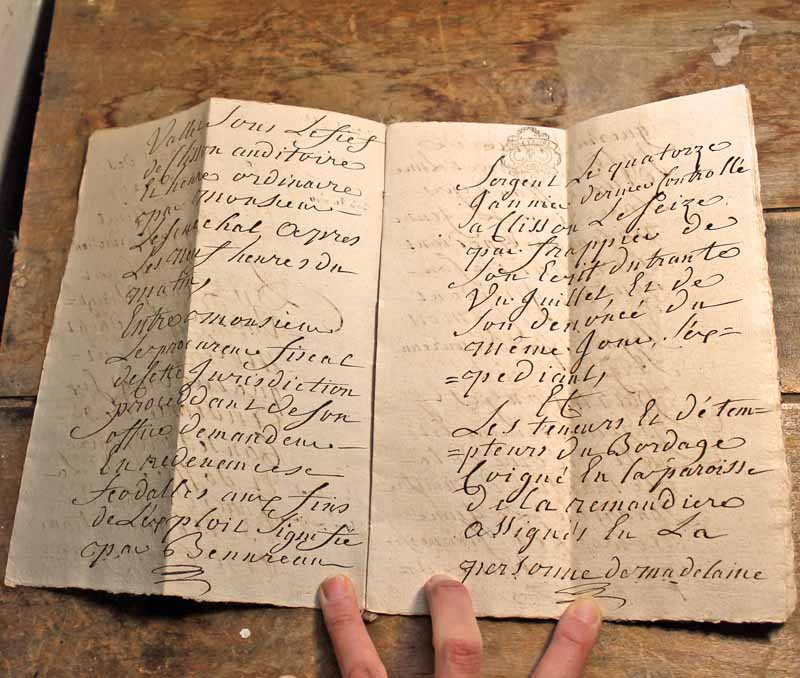 Vallet Sous Le fief
de Clisson auditoire
Et heure ordinaire
par monsieur
Le senechal apres
Les neuf heures du
matin,
Entre monsieur
Le procureur fiscal
de cette Jurisdiction
procedant de son
office demandeur
En redevances
feodalles aux fins
de L'exploit Signifie
par Bennreau
Sergent Le quatorze
Janvier dernier Controllé
a Clisson Le Seize
par frappier de
Son Ecrit du trante
Un Juillet Et de
Son denoncé du
même Jour, L'ex=
=pediant,
Et
Les teneurs Et détem=
=pteurs du Bordage
Coigné En la paroisse
de la remaudiere
assignés En La
personne de madelaine